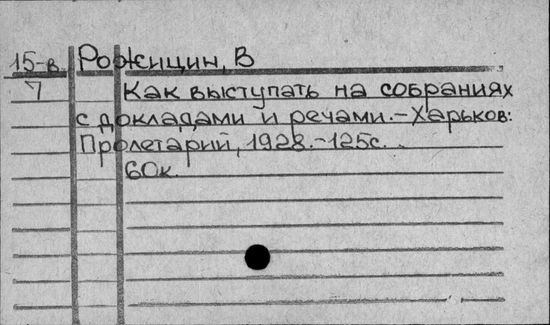 15-в Рожицин, В
7 Как выступать на собраниях
с докладами и речами.-Харьков:
Пролетарий, 1928.-125с.
60к.